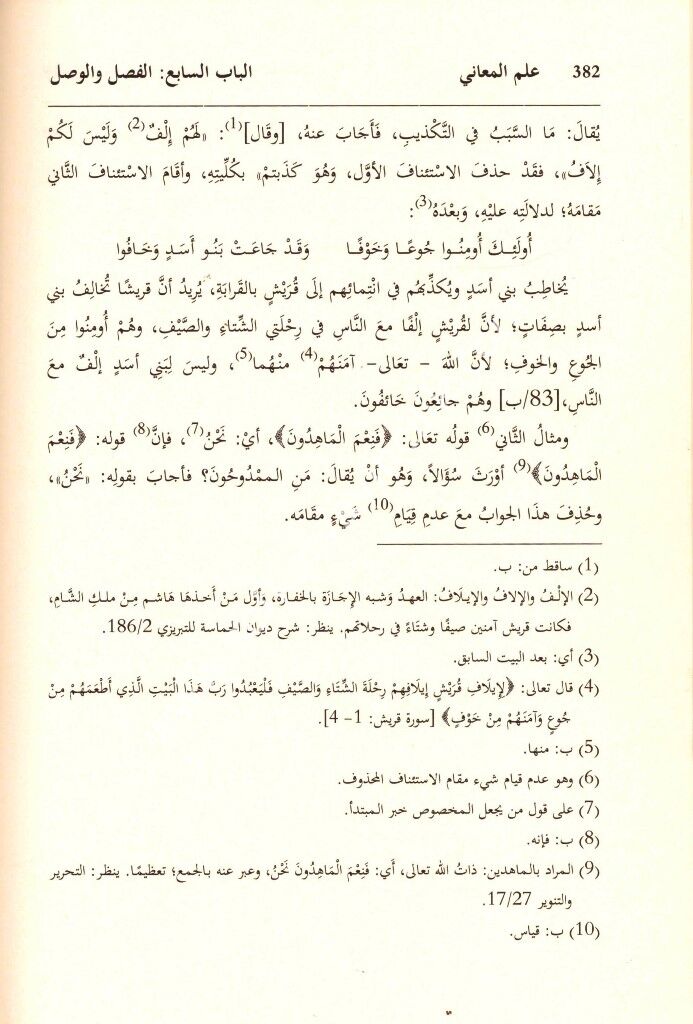 382 علم المعاني الباب السابع: الفصل والوصل
يُقالَ: مَا السَّبَبُ في التَّكْذيبِ، فَأَجَابَ عنهُ، [وقَال](1): «لَهُمْ إِلْفٌ(2) وَلَيْسَ لَكُمْ
إِلاَفُ»، فقَدْ حذفَ الاسْتئنافَ الأوَّل، وهُوَ كَذَبتمْ» بكُلِّيتِهِ، وأقَامَ الاسْتئنافَ الثَّاني
مَقامَهُ؛ لدلالَتِه عليْهِ، وَبَعْدَهُ(3):
أُولَئِكَ أُومِنُـوا جُوعًـا وَخَوْفًـا وَقَـدْ جَاعَـتْ بَنُـو أَسَدٍ وَخَافُوا
يُخاطِبُ بني أسَدٍ ويُكذِّبهُم في انْتِمائِهم إلَى قُرَيْشٍ بالقَرابَةِ، يُرِيدُ أنَّ قريشًا تُخالِفُ بني
أسدٍ بصِفَاتٍ؛ لأنَّ لقُريْشٍ إلْفًا معَ النَّاسِ في رِحْلَتي الشِّتاءِ والصَّيْفِ، وهُمْ أُومِنُوا مِنَ
الجُوعِ والخوفِ؛ لأنَّ اللهَ - تعَالى- آمَنَهُمْ(4) منْهُما(5)، وليسَ لِبَنِي أسَدٍ إلْفٌ معَ
النَّاسِ،[83/ب] وهُمْ جائِعُونَ خَائفُونَ.
ومثالُ الثَّاني(6) قولُه تعَالى: ﴿فَنِعْمَ الْمَاهِدُونَ﴾، أيْ: نَحْنُ(7)، فإنَّ(8) قوله: ﴿فَنِعْمَ
الْمَاهِدُونَ﴾(9) أوْرَثَ سُؤَالاً، وَهُو أنْ يُقالَ: مَنِ الممْدُوحُونَ؟ فأجابَ بقولِه: «نَحْنُ»،
وحُذِفَ هذَا الجوابُ معَ عدمِ قِيَامِ(10) شَيْءٍ مقَامَه.
(1) ساقط من: ب.
(2) الإلْـفُ والإلافُ والإيـلَافُ: العهـدُ وَشبه الإجَـازَة بالخفـارة، وأوَّل مَـنْ أخـذهَا هَاشـم مِـنْ ملـكِ الشَّـامِ،
فكانت قريش آمنين صيفًا وشتَاءً في رحلاتهم. ينظر: شرح ديوان الحماسة للتبريزي 186/2.
(3) أي: بعد البيت السابق.
(4) قال تعالى: ﴿لِإِيلَافِ قُرَيْشٍ إِيلَافِهِمْ رِحْلَةَ الشِّتَاءِ وَالصَّيْفِ فَلْيَعْبُدُوا رَبَّ هَذَا الْبَيْتِ الَّذِي أَطْعَمَهُمْ مِنْ
جُوعٍ وَآمَنَهُمْ مِنْ خَوْفٍ﴾ [سورة قريش: 1- 4].
(5) ب: منها.
(6) وهو عدم قيام شيء مقام الاستئناف المحذوف.
(7) على قول من يجعل المخصوص خبر المبتدأ.
(8) ب: فإنه.
(9) المراد بالماهدين: ذاتُ الله تعالى، أي: فَنِعْمَ الْمَاهِدُونَ نَحْنُ، وعبر عنه بالجمع؛ تعظيمًا. ينظر: التحرير
والتنوير 17/27.
(10) ب: قياس.